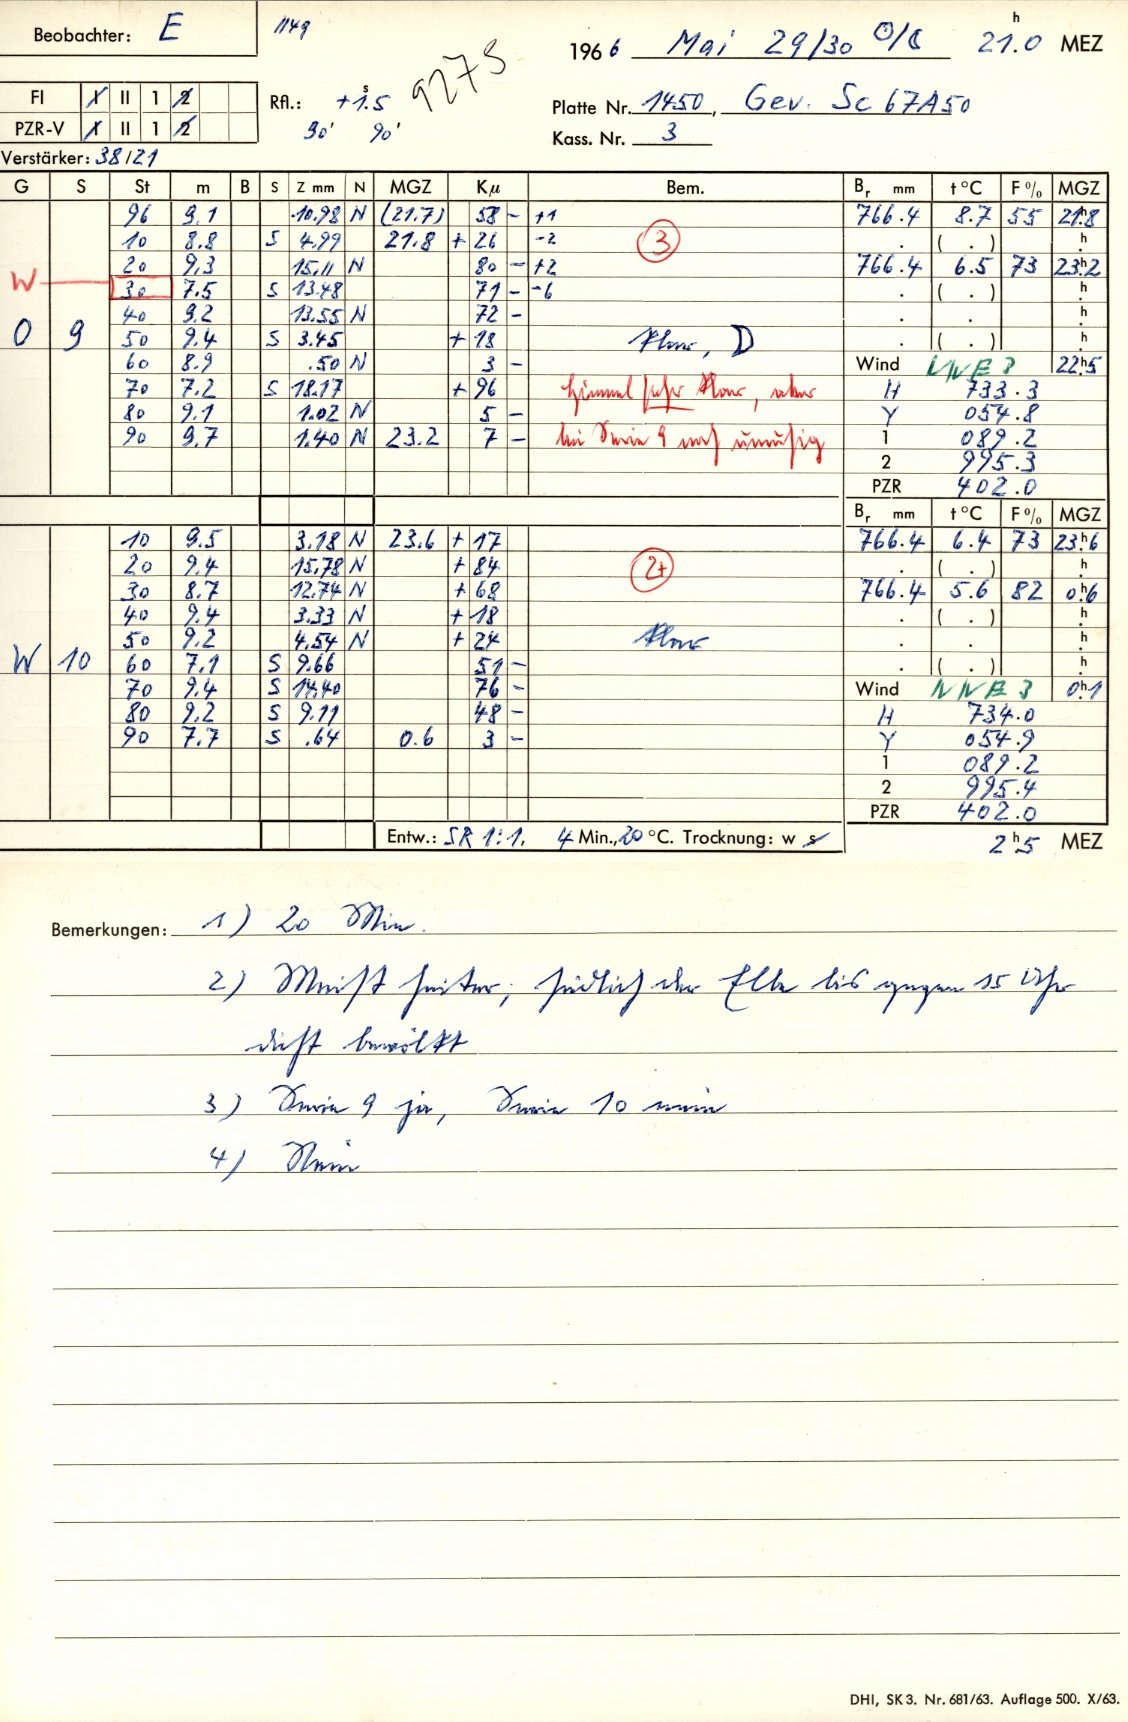 Beobachter: E
1149
1966 Mai 29/30 21.0 h MEZ
FI I II 1 2
PZR-V I II 1 2
Verstärker: 38/21
Rfl.: +1.5 s
30' 90'
9275
Platte Nr. 1450, Gev. Sc 67A50
Kass. Nr. 3
G S St m B S Z mm N MGZ Kμ Bem. Br mm t °C F % MGZ
96 9.1 10.98 N (21.7) 58 - +1 766.4 8.7 55 21h8
10 8.8 S 4.99 21.8 + 26 -2 (3) . ( . ) h
20 9.3 15.11 N 80 - +2 766.4 6.5 73 23h2
W 30 7.5 S 13.48 71 - -6 . ( . ) h
40 9.2 13.55 N 72 - . . h
O 9 50 9.4 S 3.45 + 18 klar, D . ( . ) h
60 8.9 .50 N 3 - Wind NNE 3 22h5
70 7.2 S 18.17 + 96 Himmel sehr klar, aber H 733.3
80 9.1 1.02 N 5 - Y 054.8
90 9.7 1.40 N 23.2 7 - bei Serie 9 noch unruhig 1 089.2
2 995.3
PZR 402.0
Br mm t °C F % MGZ
10 9.5 3.18 N 23.6 + 17 766.4 6.4 73 23h6
20 9.4 15.78 N + 84 (2+) . ( . ) h
30 8.7 12.74 N + 68 766.4 5.6 82 0h6
40 9.4 3.33 N + 18 . ( . ) h
50 9.2 4.54 N + 24 klar . . h
W 10 60 7.1 S 9.66 51 - . ( . ) h
70 9.4 S 14.40 76 - Wind NNE 3 0h1
80 9.2 S 9.11 48 - H 734.0
90 7.7 S .64 0.6 3 - Y 054.9
1 089.2
2 995.4
PZR 402.0
Entw.: SR 1:1, 4 Min., 20 °C. Trocknung: w s
2h5 MEZ
Bemerkungen: 1) 20 Min.
2) Meist heiter; südlich der Elbe bis gegen 15 Uhr
dicht bewölkt
3) Serie 9 ja, Serie 10 nein
4) Nein
DHI, SK 3. Nr. 681/63. Auflage 500. X/63.